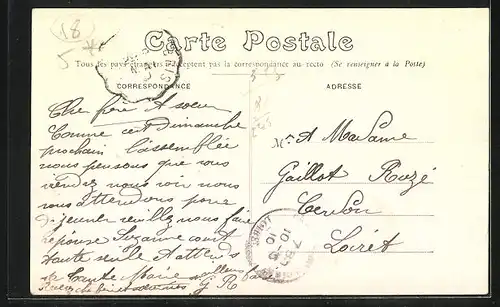 18
5
Carte Postale
Tous les pays étrangers n'acceptent pas la correspondance au recto (Se renseigner à la Poste)
CORRESPONDANCE
ADRESSE
Cher frère et sœur
Comme cest Dimanche
prochain l'assemblée
nous pensons que vous
viendez nous voir nous
vous attendons pour
déjeuner veuillez nous faire
réponse Suzanne court
toute seule
Tante Marie
G R
Mr et Madame
Gaillot Rozé
Cerdon
Loiret